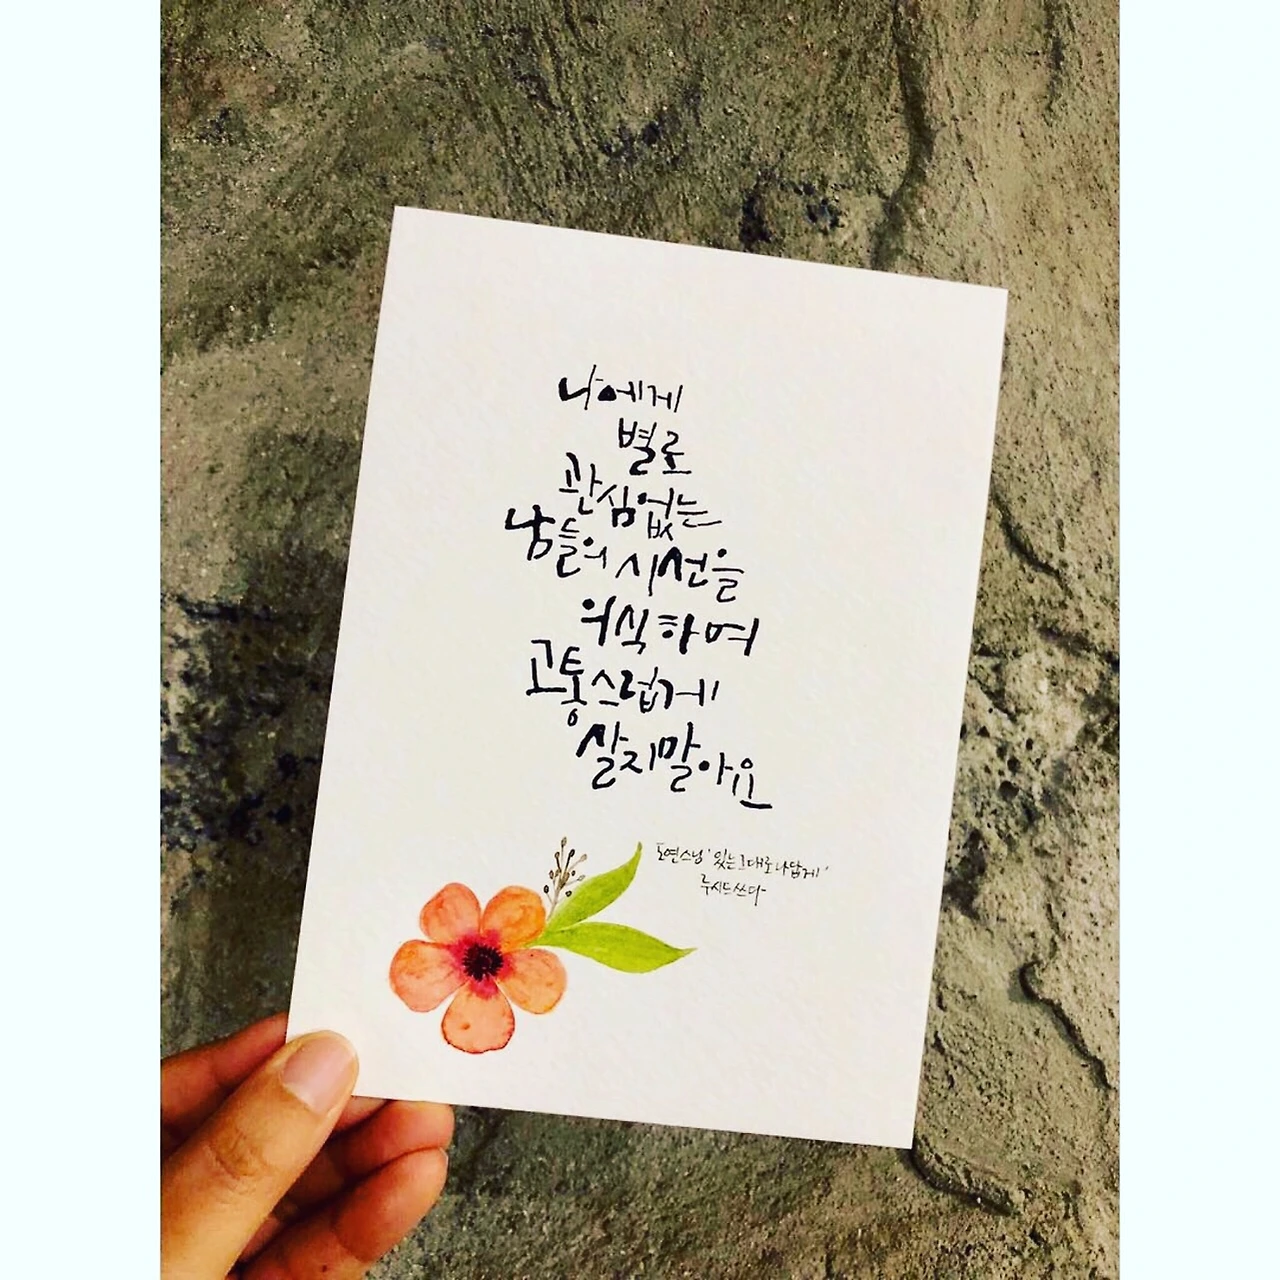 나에게
별로
관심없는
남들의 시선을
의식하며
고통스럽게
살지말아요
도연스님 '있는그대로나답게'
루시드쓰다